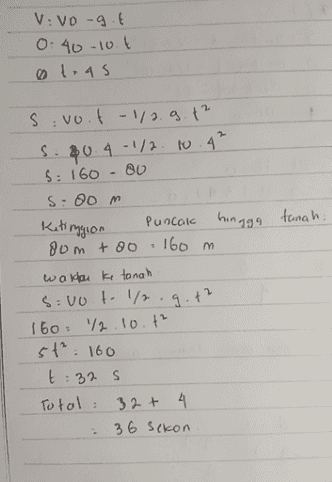 V : VO - g . t
O : 40 - 10 . t
t . 4 S
S : VO . t - 1/2 . g . t²
S . 40 . 4 - 1/2 . 10 . 4²
S : 160 - 80
S = 80 m
Ketinggian Puncak hingga tanah :
80 m + 80 = 160 m
waktu ke tanah
S : VO t - 1/2 . g . t²
160 = 1/2 . 10 . t²
5t² : 160
t : 32 S
Total : 32 + 4
: 36 Sekon